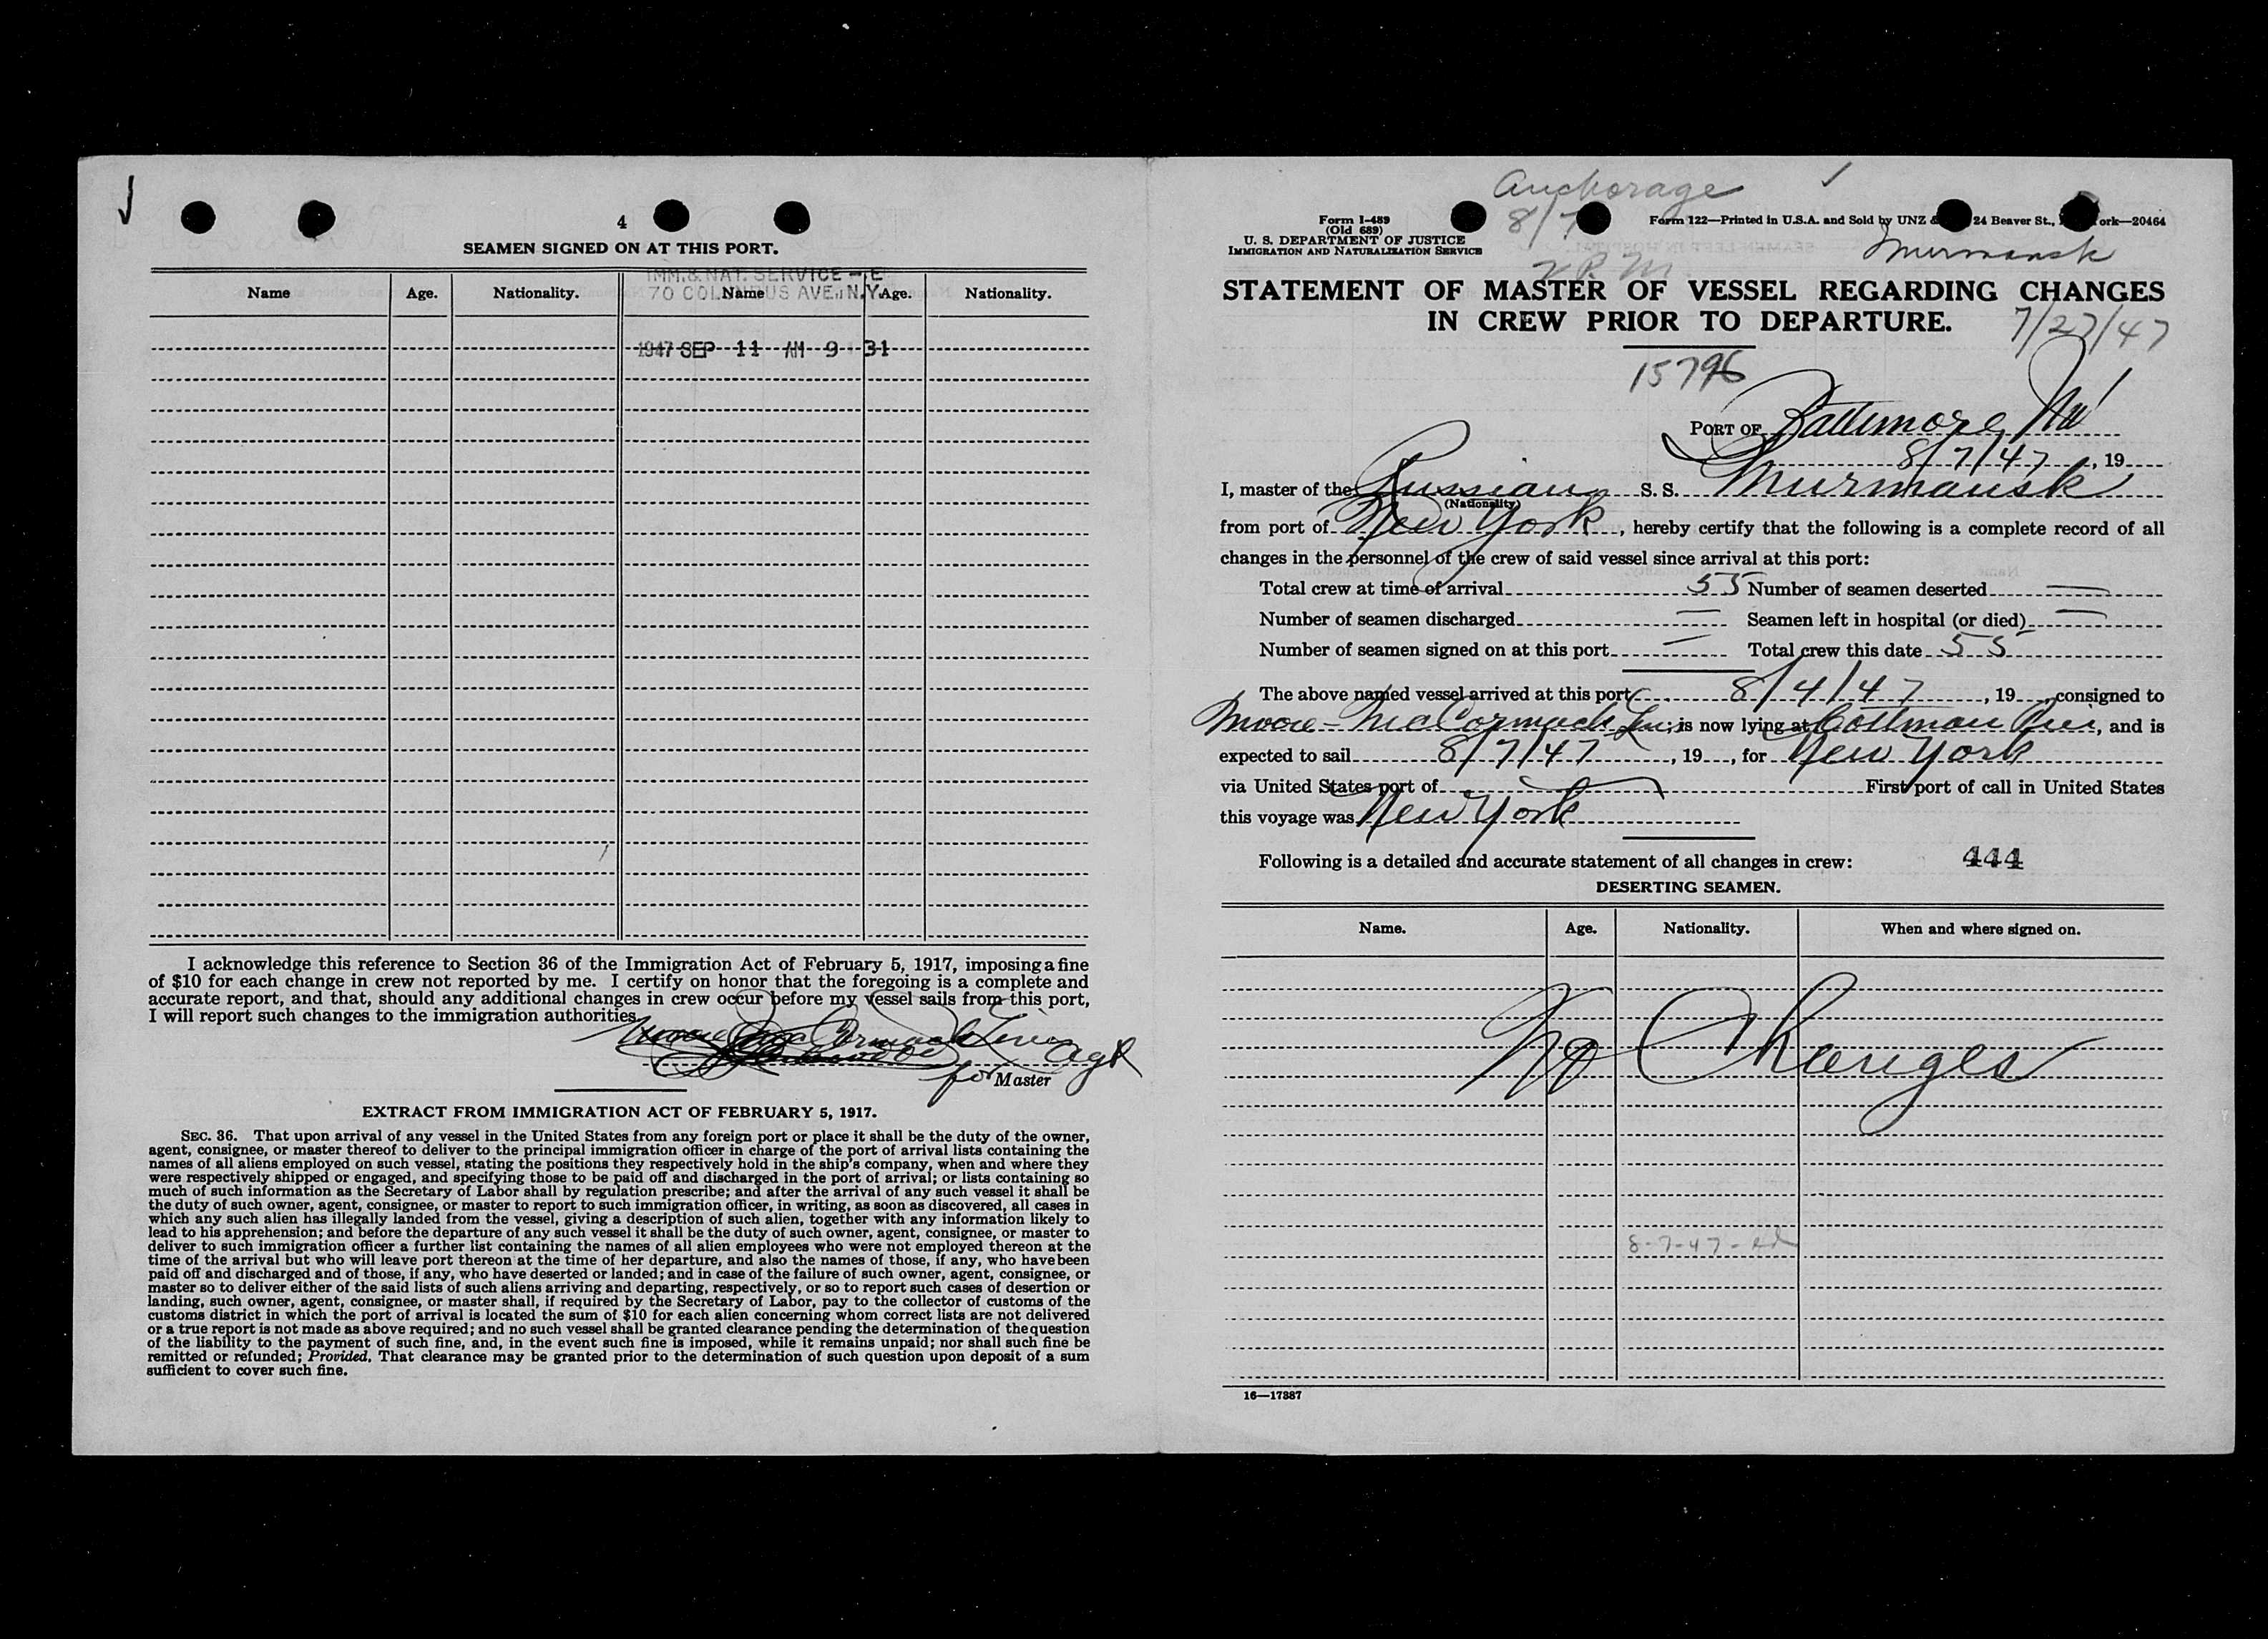 4
SEAMEN SIGNED ON AT THIS PORT.
IMM. & NAT. SERVICE - E
70 COLUMBUS AVE., N.Y.
Name Age. Nationality. Name Age. Nationality.
1947 SEP 11 AM 9 31
I acknowledge this reference to Section 36 of the Immigration Act of February 5, 1917, imposing a fine
of $10 for each change in crew not reported by me. I certify on honor that the foregoing is a complete and
accurate report, and that, should any additional changes in crew occur before my vessel sails from this port,
I will report such changes to the immigration authorities.
Moore McCormack Lines
Agt
for Master
EXTRACT FROM IMMIGRATION ACT OF FEBRUARY 5, 1917.
SEC. 36. That upon arrival of any vessel in the United States from any foreign port or place it shall be the duty of the owner,
agent, consignee, or master thereof to deliver to the principal immigration officer in charge of the port of arrival lists containing the
names of all aliens employed on such vessel, stating the positions they respectively hold in the ship's company, when and where they
were respectively shipped or engaged, and specifying those to be paid off and discharged in the port of arrival; or lists containing so
much of such information as the Secretary of Labor shall by regulation prescribe; and after the arrival of any such vessel it shall be
the duty of such owner, agent, consignee, or master to report to such immigration officer, in writing, as soon as discovered, all cases in
which any such alien has illegally landed from the vessel, giving a description of such alien, together with any information likely to
lead to his apprehension; and before the departure of any such vessel it shall be the duty of such owner, agent, consignee, or master to
deliver to such immigration officer a further list containing the names of all alien employees who were not employed thereon at the
time of the arrival but who will leave port thereon at the time of her departure, and also the names of those, if any, who have been
paid off and discharged and of those, if any, who have deserted or landed; and in case of the failure of such owner, agent, consignee, or
master so to deliver either of the said lists of such aliens arriving and departing, respectively, or so to report such cases of desertion or
landing, such owner, agent, consignee, or master shall, if required by the Secretary of Labor, pay to the collector of customs of the
customs district in which the port of arrival is located the sum of $10 for each alien concerning whom correct lists are not delivered
or a true report is not made as above required; and no such vessel shall be granted clearance pending the determination of the question
of the liability to the payment of such fine, and, in the event such fine is imposed, while it remains unpaid; nor shall such fine be
remitted or refunded; Provided, That clearance may be granted prior to the determination of such question upon deposit of a sum
sufficient to cover such fine.
Anchorage
8/7
Form I-489
(Old 689)
U. S. DEPARTMENT OF JUSTICE
IMMIGRATION AND NATURALIZATION SERVICE
Form 122—Printed in U.S.A. and Sold by UNZ & 24 Beaver St., ork—20464
Murmansk
STATEMENT OF MASTER OF VESSEL REGARDING CHANGES
IN CREW PRIOR TO DEPARTURE.
7/27/47
15796
PORT OF Baltimore, Md
8/7/47, 19
I, master of the Russian S. S. Murmansk
(Nationality)
from port of New York, hereby certify that the following is a complete record of all
changes in the personnel of the crew of said vessel since arrival at this port:
Total crew at time of arrival 55 Number of seamen deserted —
Number of seamen discharged — Seamen left in hospital (or died) —
Number of seamen signed on at this port — Total crew this date 55
The above named vessel arrived at this port 8/4/47, 19, consigned to
Moore-McCormack Lines is now lying at Cottman Pier, and is
expected to sail 8/7/47, 19, for New York
via United States port of — First port of call in United States
this voyage was New York
Following is a detailed and accurate statement of all changes in crew: 444
DESERTING SEAMEN.
Name. Age. Nationality. When and where signed on.
No Changes
8-7-47-
16—17887